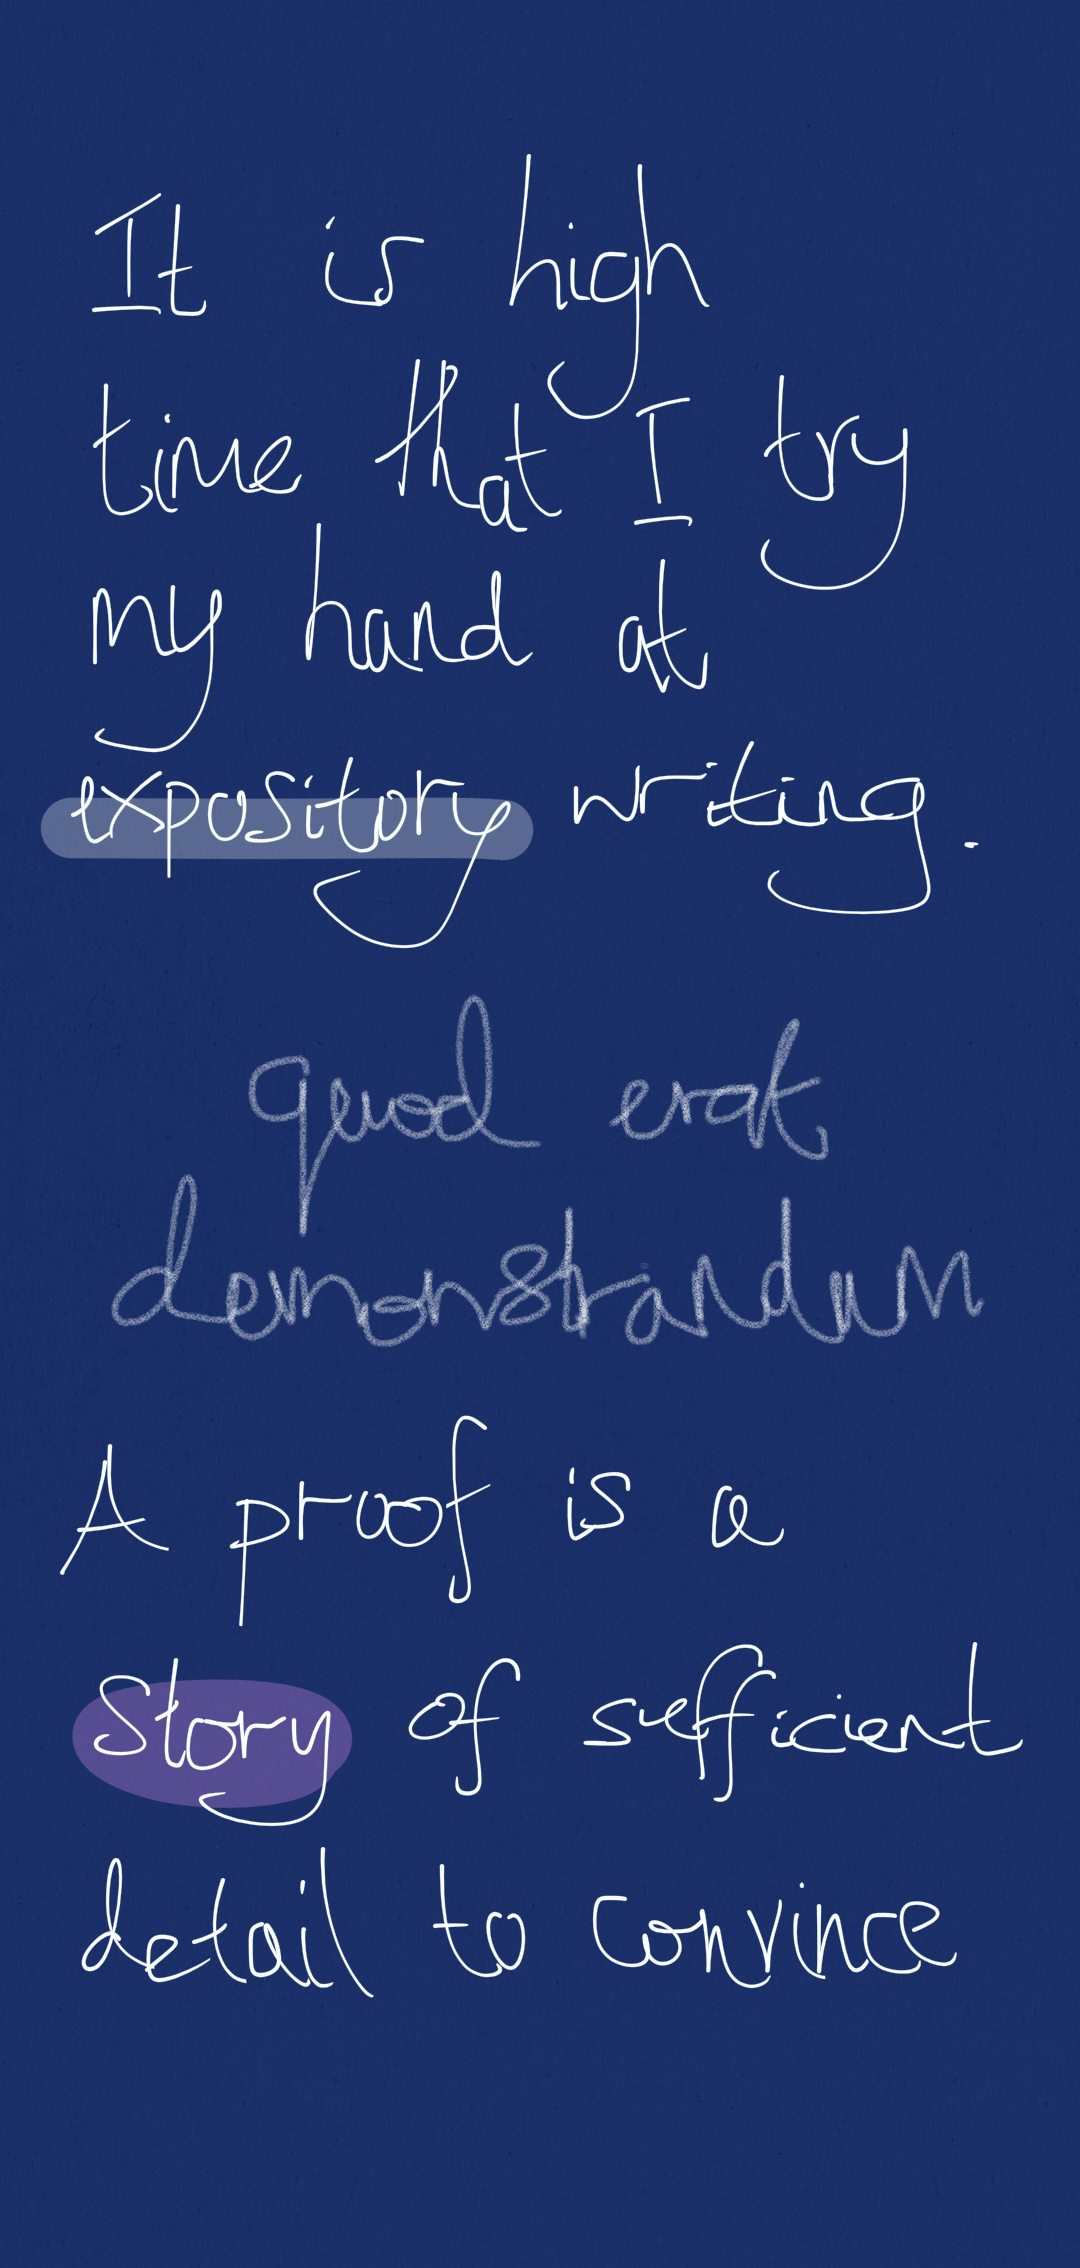 It is high
time that I try
my hand at
expository writing.
quod erat
demonstrandum
A proof is a
story of sufficient
detail to convince